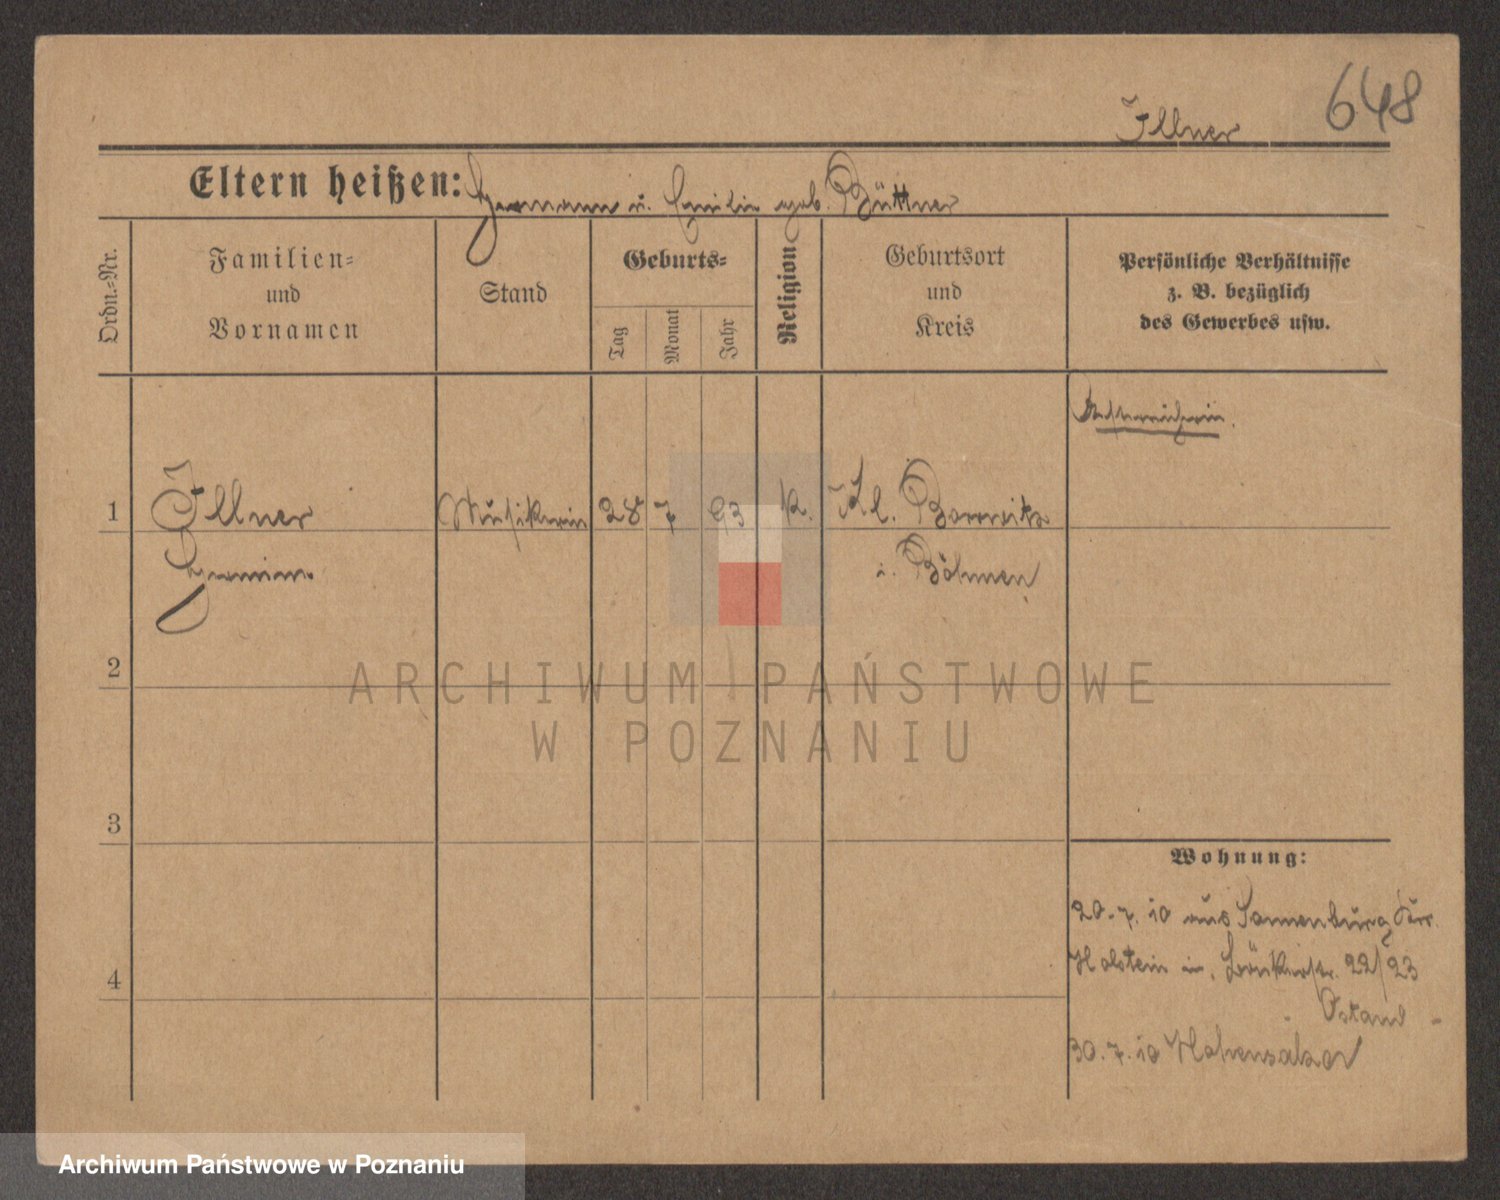 648
Illner
Eltern heißen: Hermann u. Emilie geb. Büttner
Ordn.-Nr.
Familien-
und
Vornamen
Stand
Geburts-
Tag
Monat
Jahr
Religion
Geburtsort
und
Kreis
Persönliche Verhältnisse
z. B. bezüglich
des Gewerbes usw.
Österreicherin.
1
Illner
Musikerin
28
7
93
k.
Kl. Borowitz
Hermine
i. Böhmen
2
3
4
Wohnung:
20.7.10 aus Sonnenburg
Holstein in, 22/23
30.7.10 Hohensalza
ARCHIWUM PAŃSTWOWE
W POZNANIU
Archiwum Państwowe w Poznaniu